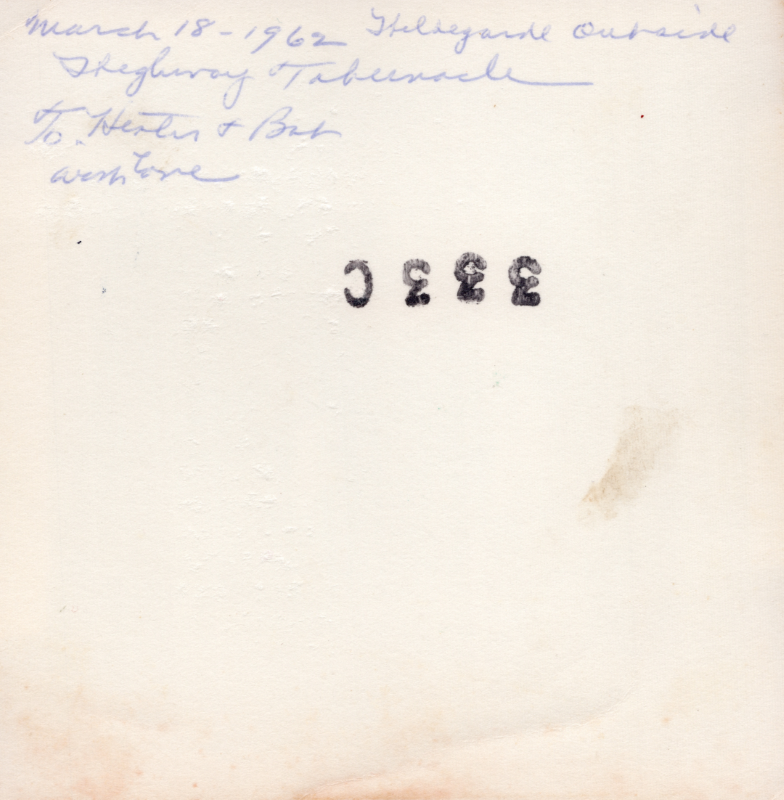 March 18 - 1962 Hildegarde Outside
Highway Tabernacle
To. Hester + Bob
with Love
333C